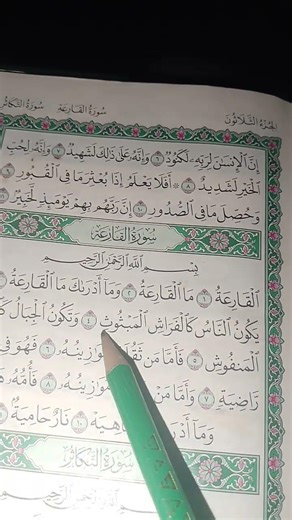 سُورَةُ القَارِعَةِ سُورَةُ التَّكَاثُرِ
الجُزْءُ الثَّلَاثُونَ
إِنَّ ٱلْإِنسَـٰنَ لِرَبِّهِۦ لَكَنُودٌ ٦ وَإِنَّهُۥ عَلَىٰ ذَٰلِكَ لَشَهِيدٌ ٧ وَإِنَّهُۥ لِحُبِّ
ٱلْخَيْرِ لَشَدِيدٌ ٨ ۞ أَفَلَا يَعْلَمُ إِذَا بُعْثِرَ مَا فِى ٱلْقُبُورِ ٩
وَحُصِّلَ مَا فِى ٱلصُّدُورِ ١٠ إِنَّ رَبَّهُم بِهِمْ يَوْمَئِذٍ لَّخَبِيرٌۢ
سُورَةُ القَارِعَةِ
بِسْمِ ٱللَّهِ ٱلرَّحْمَـٰنِ ٱلرَّحِيمِ
ٱلْقَارِعَةُ ١ مَا ٱلْقَارِعَةُ ٢ وَمَآ أَدْرَىٰكَ مَا ٱلْقَارِعَةُ
يَكُونُ ٱلنَّاسُ كَٱلْفَرَاشِ ٱلْمَبْثُوثِ ٤ وَتَكُونُ ٱلْجِبَالُ
ٱلْمَنفُوشِ ٥ فَأَمَّا مَن ٦ فَهُوَ فِى
رَّاضِيَةٍ ٧ وَأَمَّا مَنْ ٨ فَأُمُّهُۥ
وَمَآ ١٠ نَارٌ حَامِيَةٌۢ
سُورَةُ التَّكَاثُرِ